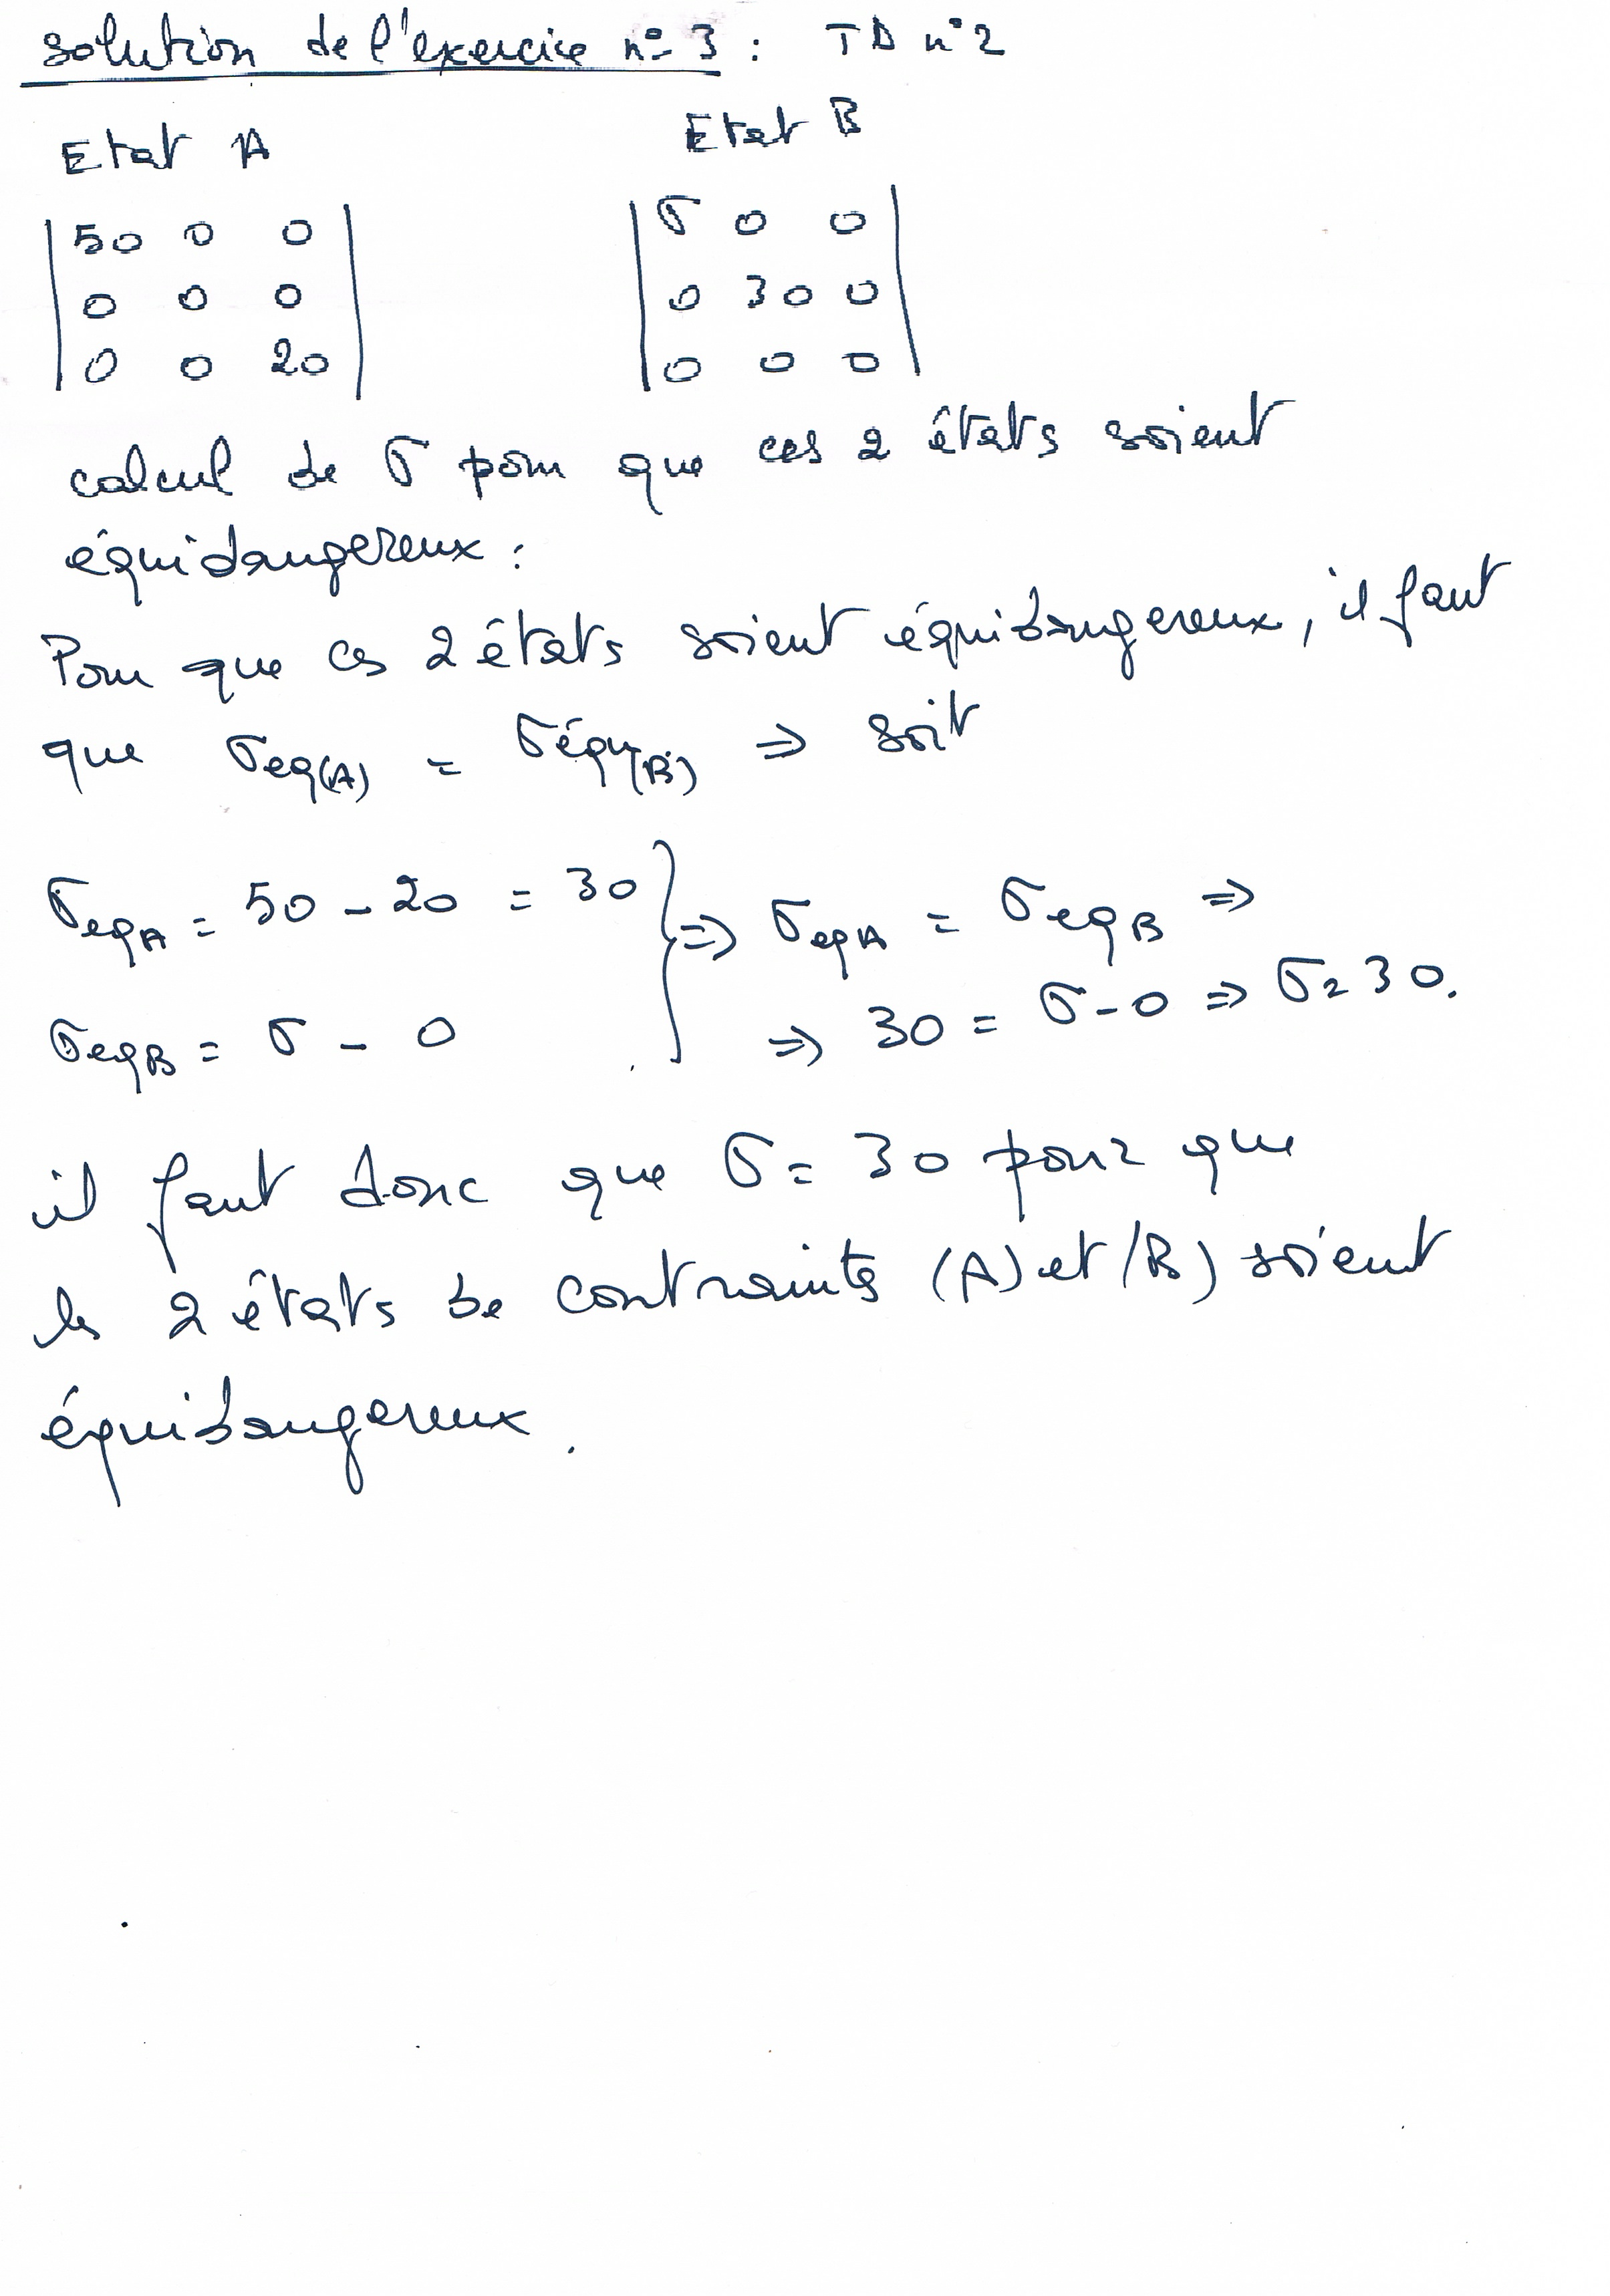 solution de l'exercice n° 3 : TD n°2
Etat A Etat B
50 0 0 σ 0 0
0 0 0 0 30 0
0 0 20 0 0 0
calcul de σ pour que ces 2 états soient
équidangereux :
Pour que ces 2 états soient équidangereux, il faut
que σeq(A) = σéqu(B) => soit
σeqA = 50 - 20 = 30 } => σeqA = σeqB =>
σeqB = σ - 0 => 30 = σ - 0 => σ = 30.
il faut donc que σ = 30 pour que
les 2 états de contraints (A) et (B) soient
équidangereux.